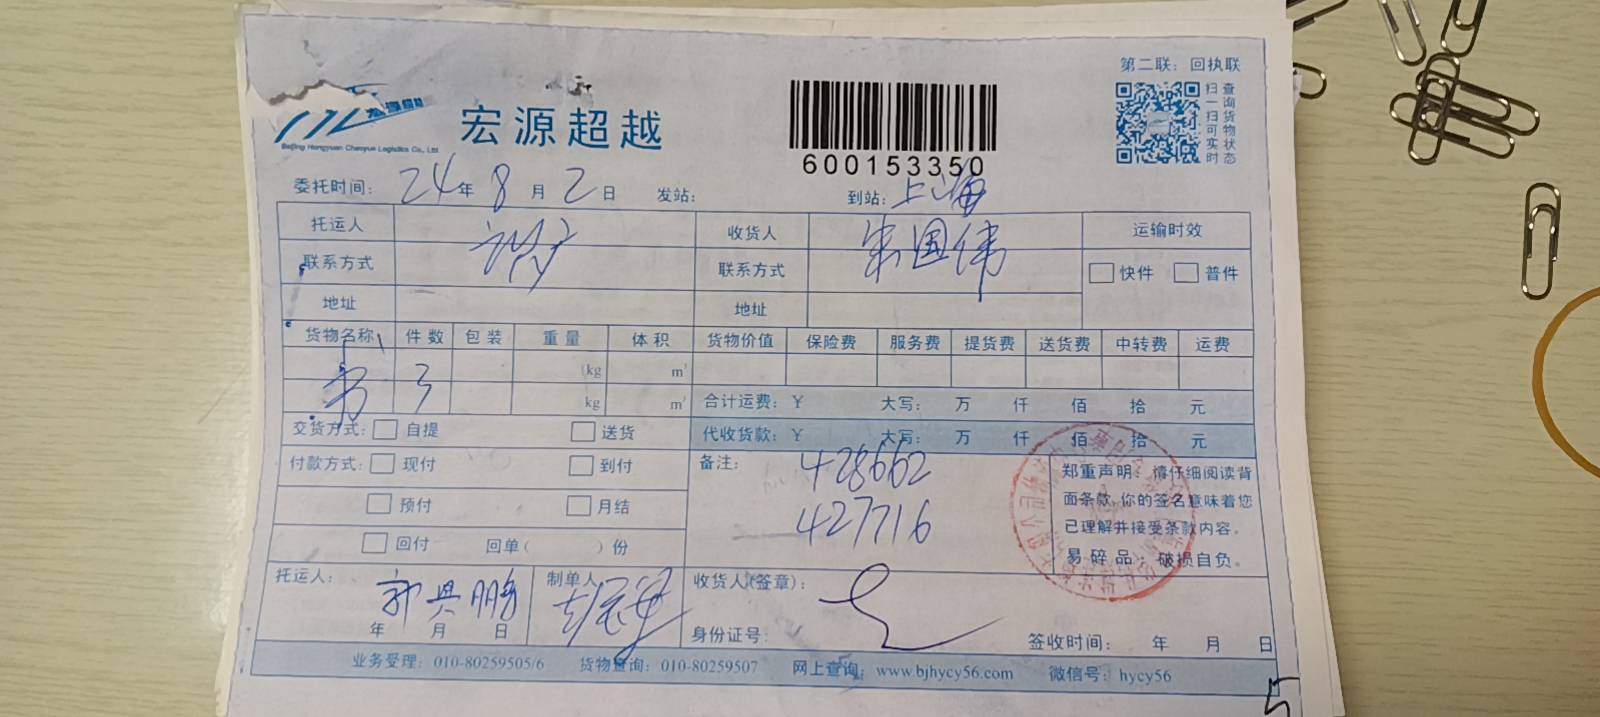 第二联：回执联
宏源超越
Beijing Hongyuan Chaoyue Logistics Co., Ltd.
扫一扫可实时
查询货物状态
600153350
委托时间： 24年 8月 2日 发站： 到站：上海
托运人 收货人 朱国伟 运输时效
联系方式 联系方式 快件 普件
地址 地址
货物名称 件数 包装 重量 体积 货物价值 保险费 服务费 提货费 送货费 中转费 运费
kg m³
书 3 kg m³
合计运费：￥ 大写： 万 仟 佰 拾 元
交货方式： 自提 送货 代收货款：￥ 大写： 万 仟 佰 拾 元
付款方式： 现付 到付
预付 月结
回付 回单（ ）份
备注： 428662
427716
郑重声明：请仔细阅读背
面条款，你的签名意味着您
已理解并接受条款内容。
易碎品，破损自负。
托运人： 郭兴鹏 制单人 收货人（签章）：
年 月 日 身份证号： 签收时间： 年 月 日
业务受理：010-80259505/6 货物查询：010-80259507 网上查询：www.bjhycy56.com 微信号：hycy56
5